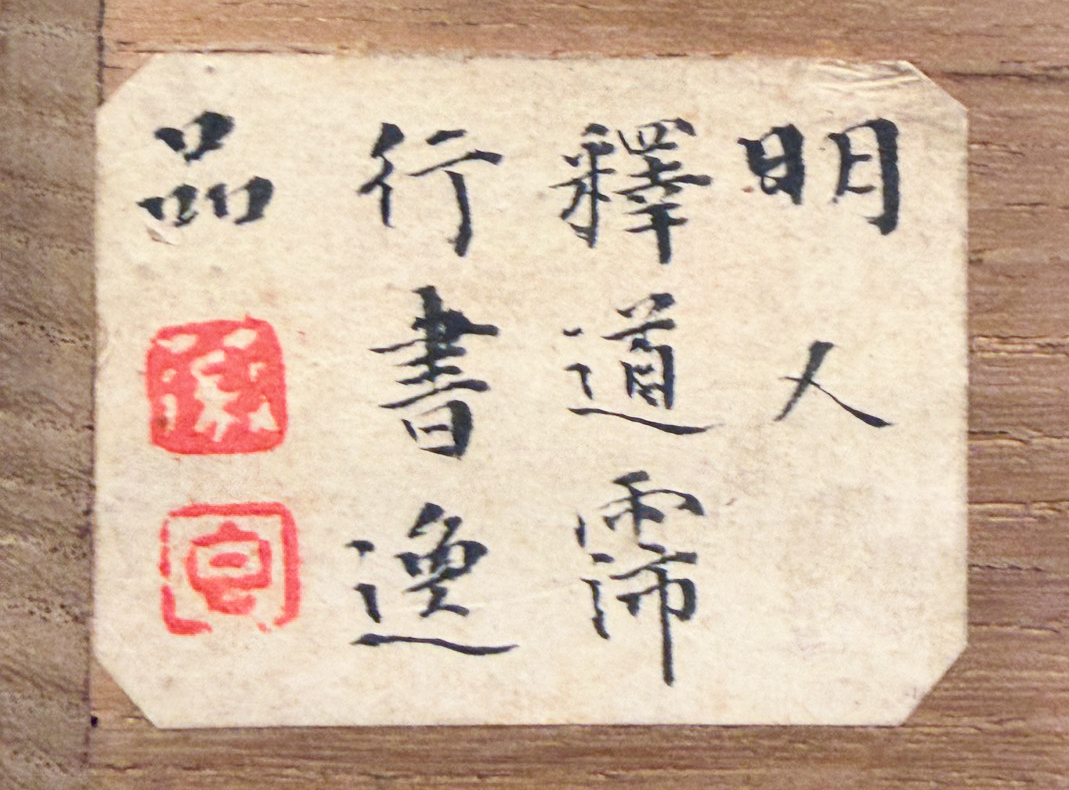 明人
釋道霈
行書逸
品